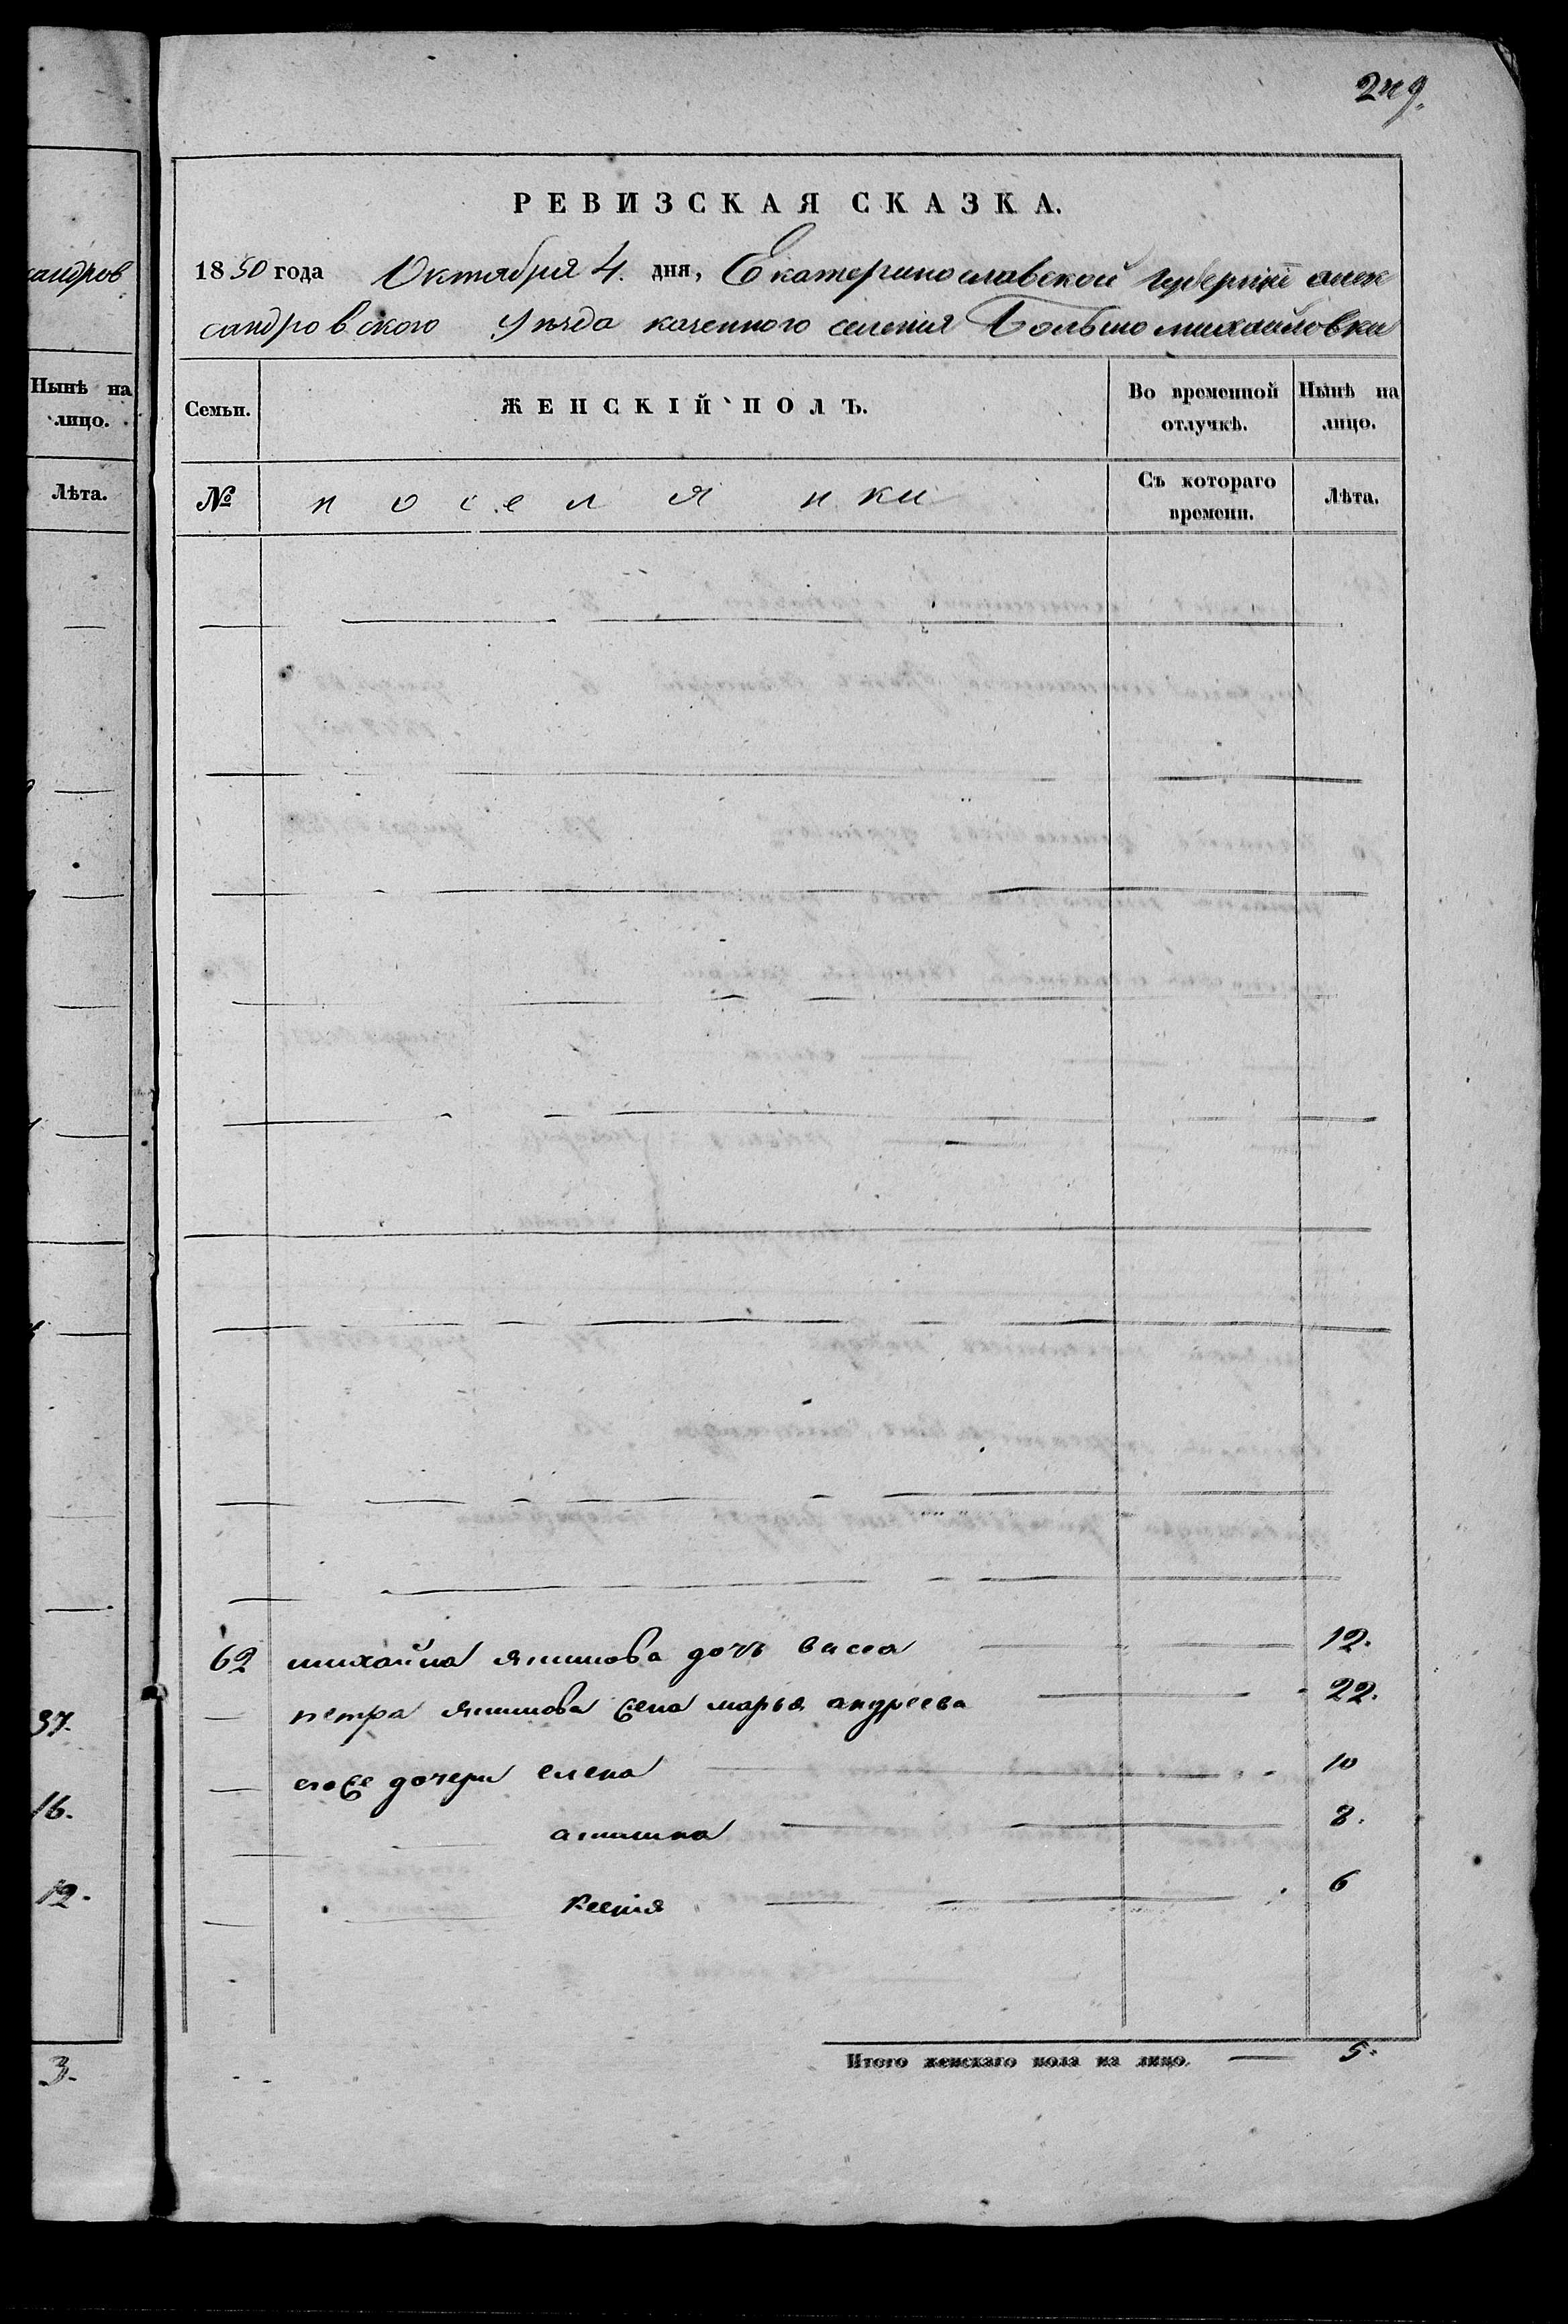 249.
РЕВИЗСКАЯ СКАЗКА.
1850 года Октября 4. дня, Екатеринославской губернии алек
сандровского Уѣзда казенного селения Большомихайловки
Семьи.
ЖЕНСКІЙ ПОЛЪ.
Во временной отлучкѣ.
Нынѣ на лицо.
№
поселянки
Съ котораго времени.
Лѣта.
62 михайла якимова дочь васса 12.
петра якимова жена марья андреева 22.
его же дочери елена 10
акилина 8.
Ксенія 6
Итого женскаго пола на лицо. 5.
андров
Нынѣ на лицо.
Лѣта.
37.
16.
12.
3.